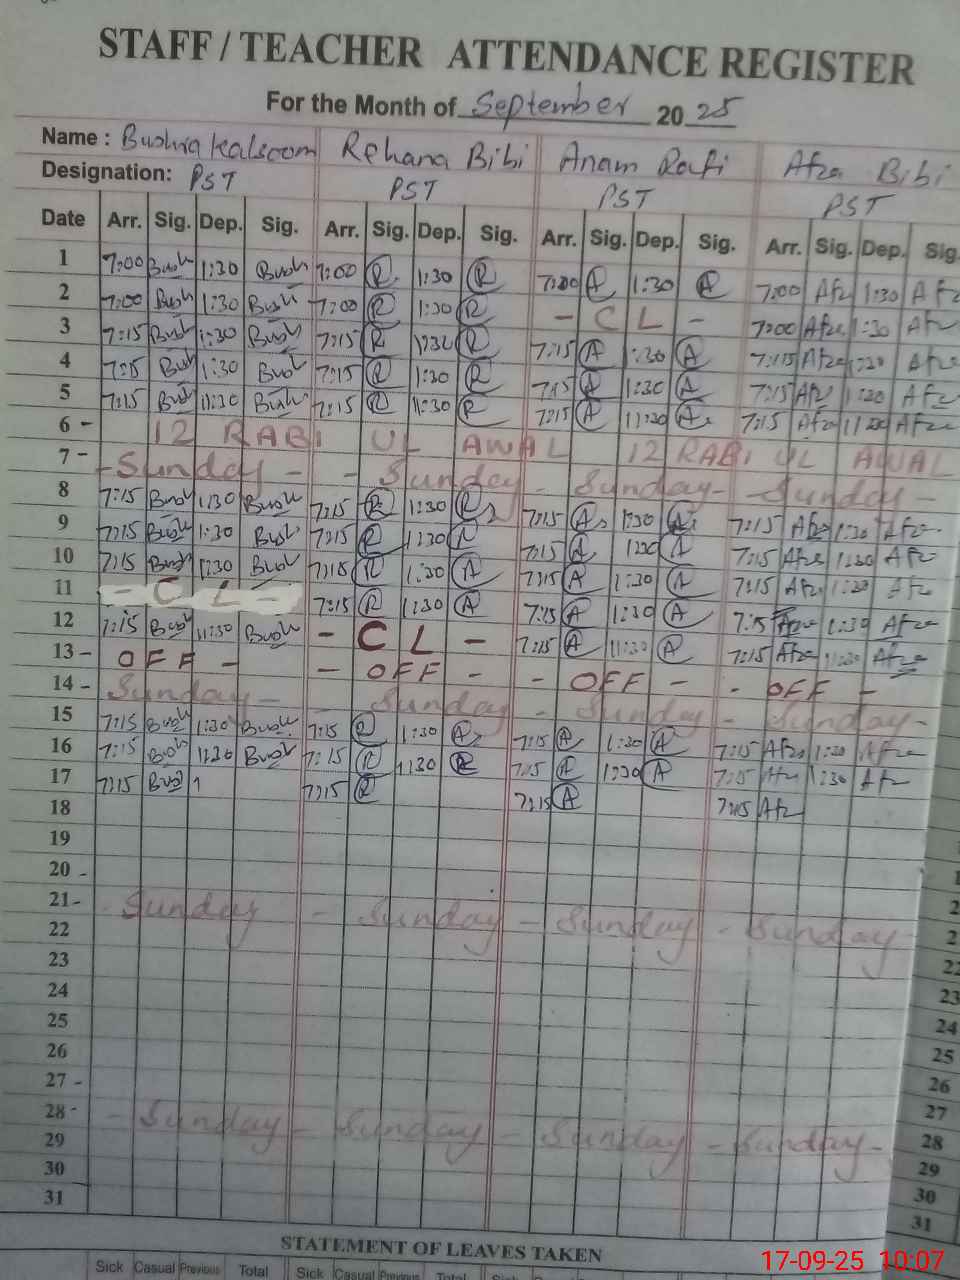 STAFF / TEACHER ATTENDANCE REGISTER
For the Month of September 20 25
Name : Bushra Kalsoom Rehana Bibi Anam Rafi Afza Bibi
Designation: PST PST PST PST
Date Arr. Sig. Dep. Sig. Arr. Sig. Dep. Sig. Arr. Sig. Dep. Sig. Arr. Sig. Dep. Sig.
1 7:00 Bush 1:30 Bush 7:00 R 1:30 R 7:00 A 1:30 A 7:00 Afz 1:30 Afz
2 7:00 Bush 1:30 Bush 7:00 R 1:30 R - C L - 7:00 Afza 1:30 Afz
3 7:15 Bush 1:30 Bush 7:15 R 1:30 R 7:15 A 1:30 A 7:15 Afza 1:30 Afz
4 7:15 Bush 1:30 Bush 7:15 R 1:30 R 7:15 A 1:30 A 7:15 Afz 1:30 Afz
5 7:15 Bush 11:30 Bush 7:15 R 11:30 R 7:15 A 11:30 A 7:15 Afza 11:30 Afza
6 - 12 RABI UL AWAL 12 RABI UL AWAL
7 - - Sunday - - Sunday - Sunday - - Sunday -
8 7:15 Bush 1:30 Bush 7:15 R 1:30 R 7:15 A 1:30 A 7:15 Afza 1:30 Afza
9 7:15 Bush 1:30 Bush 7:15 R 1:30 R 7:15 A 1:30 A 7:15 Afza 1:30 Afz
10 7:15 Bush 1:30 Bush 7:15 R 1:30 A 7:15 A 1:30 A 7:15 Afz 1:30 Afz
11 - C L - 7:15 R 1:30 A 7:15 A 1:30 A 7:15 Afza 1:30 Afza
12 7:15 Bush 11:30 Bush - C L - 7:15 A 11:30 A 7:15 Afza 11:30 Afza
13 - OFF - - OFF - - OFF - - OFF -
14 - Sunday - - Sunday - Sunday - Sunday -
15 7:15 Bush 1:30 Bush 7:15 R 1:30 A 7:15 A 1:30 A 7:15 Afza 1:30 Afza
16 7:15 Bush 1:30 Bush 7:15 R 1:30 R 7:15 A 1:30 A 7:15 Afz 1:30 Afz
17 7:15 Bush 1 7:15 R 7:15 A 7:15 Afz
18
19
20 -
21 - - Sunday - Sunday - Sunday - Sunday
22 2
23 22
24 23
25 24
26 25
27 - 26
28 - - Sunday - Sunday - Sunday - Sunday - 27
29 28
30 29
31 30
31
STATEMENT OF LEAVES TAKEN
Sick Casual Previous Total Sick Casual Previous Total
17-09-25 10:07